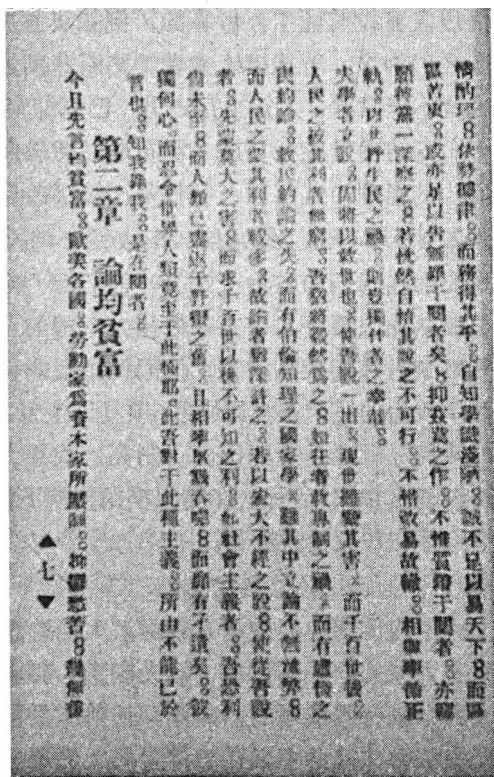 情酌理。依參國律。而務得其平。自知學識淺陋。誠不足以易天下。而區
區若衷。或亦足以告無罪于閱者矣。抑茲篇之作。不惟質證于閱者。亦竊
願彼黨一深察之。若恍然自悟其說之不可行。不惜改易故轍。相與率循正
軌。以世拯生民之禍。則豈獨作者之幸哉。
夫學者立說。固將以救世也。使吾說一出。現世雖受其害。而千百世後。
人民之被其利者無窮。吾猶將毅然爲之。如往者救專制之禍。而有盧梭之
民約論。救民約論之失。而有伯倫知理之國家學。雖其中立論不無流弊。
而人民之蒙其利者較多。故論者難深訾之。若以宏大不經之說。使從吾說
者。先蒙莫大之害。而求千百世以後不可知之利。如社會主義者。吾恐利
尚未至。而人類已盡返于野蠻之舊。且相率吞噬。而靡有孑遺矣。彼
獨何心。而忍令世界人類竟至于此極耶。此吾對于此種主義。所由不能已於
言也。知我罪我。是在閱者。
第二章 論均貧富
今且先言均貧富。歐美各國。勞動家爲資本家所壓制。抑鬱愁苦。幾無復
▲七▼